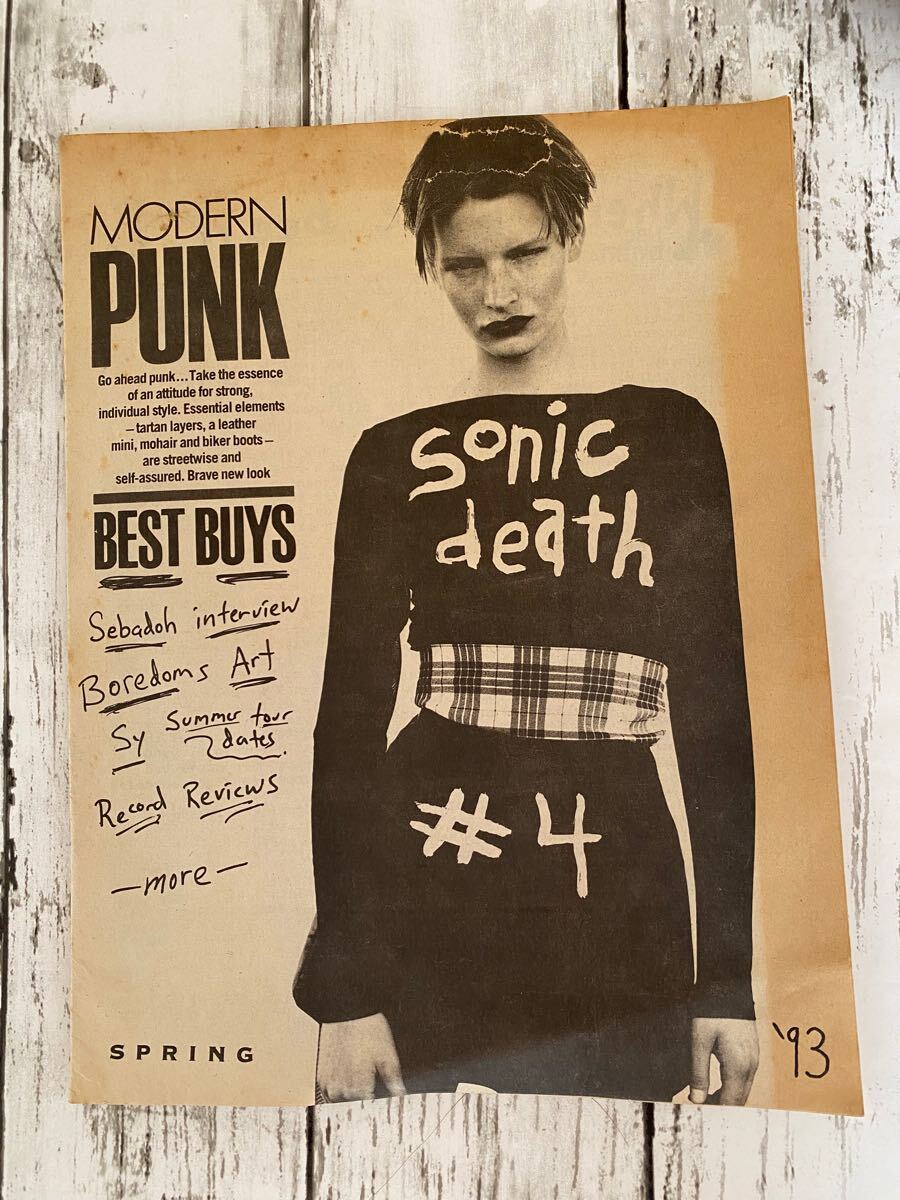 MODERN
PUNK
Go ahead punk...Take the essence
of an attitude for strong,
individual style. Essential elements
– tartan layers, a leather
mini, mohair and biker boots –
are streetwise and
self-assured. Brave new look
BEST BUYS
Sebadoh interview
Boredoms Art
Sy Summer tour
dates.
Record Reviews
—more—
SPRING
sonic
death
#4
'93